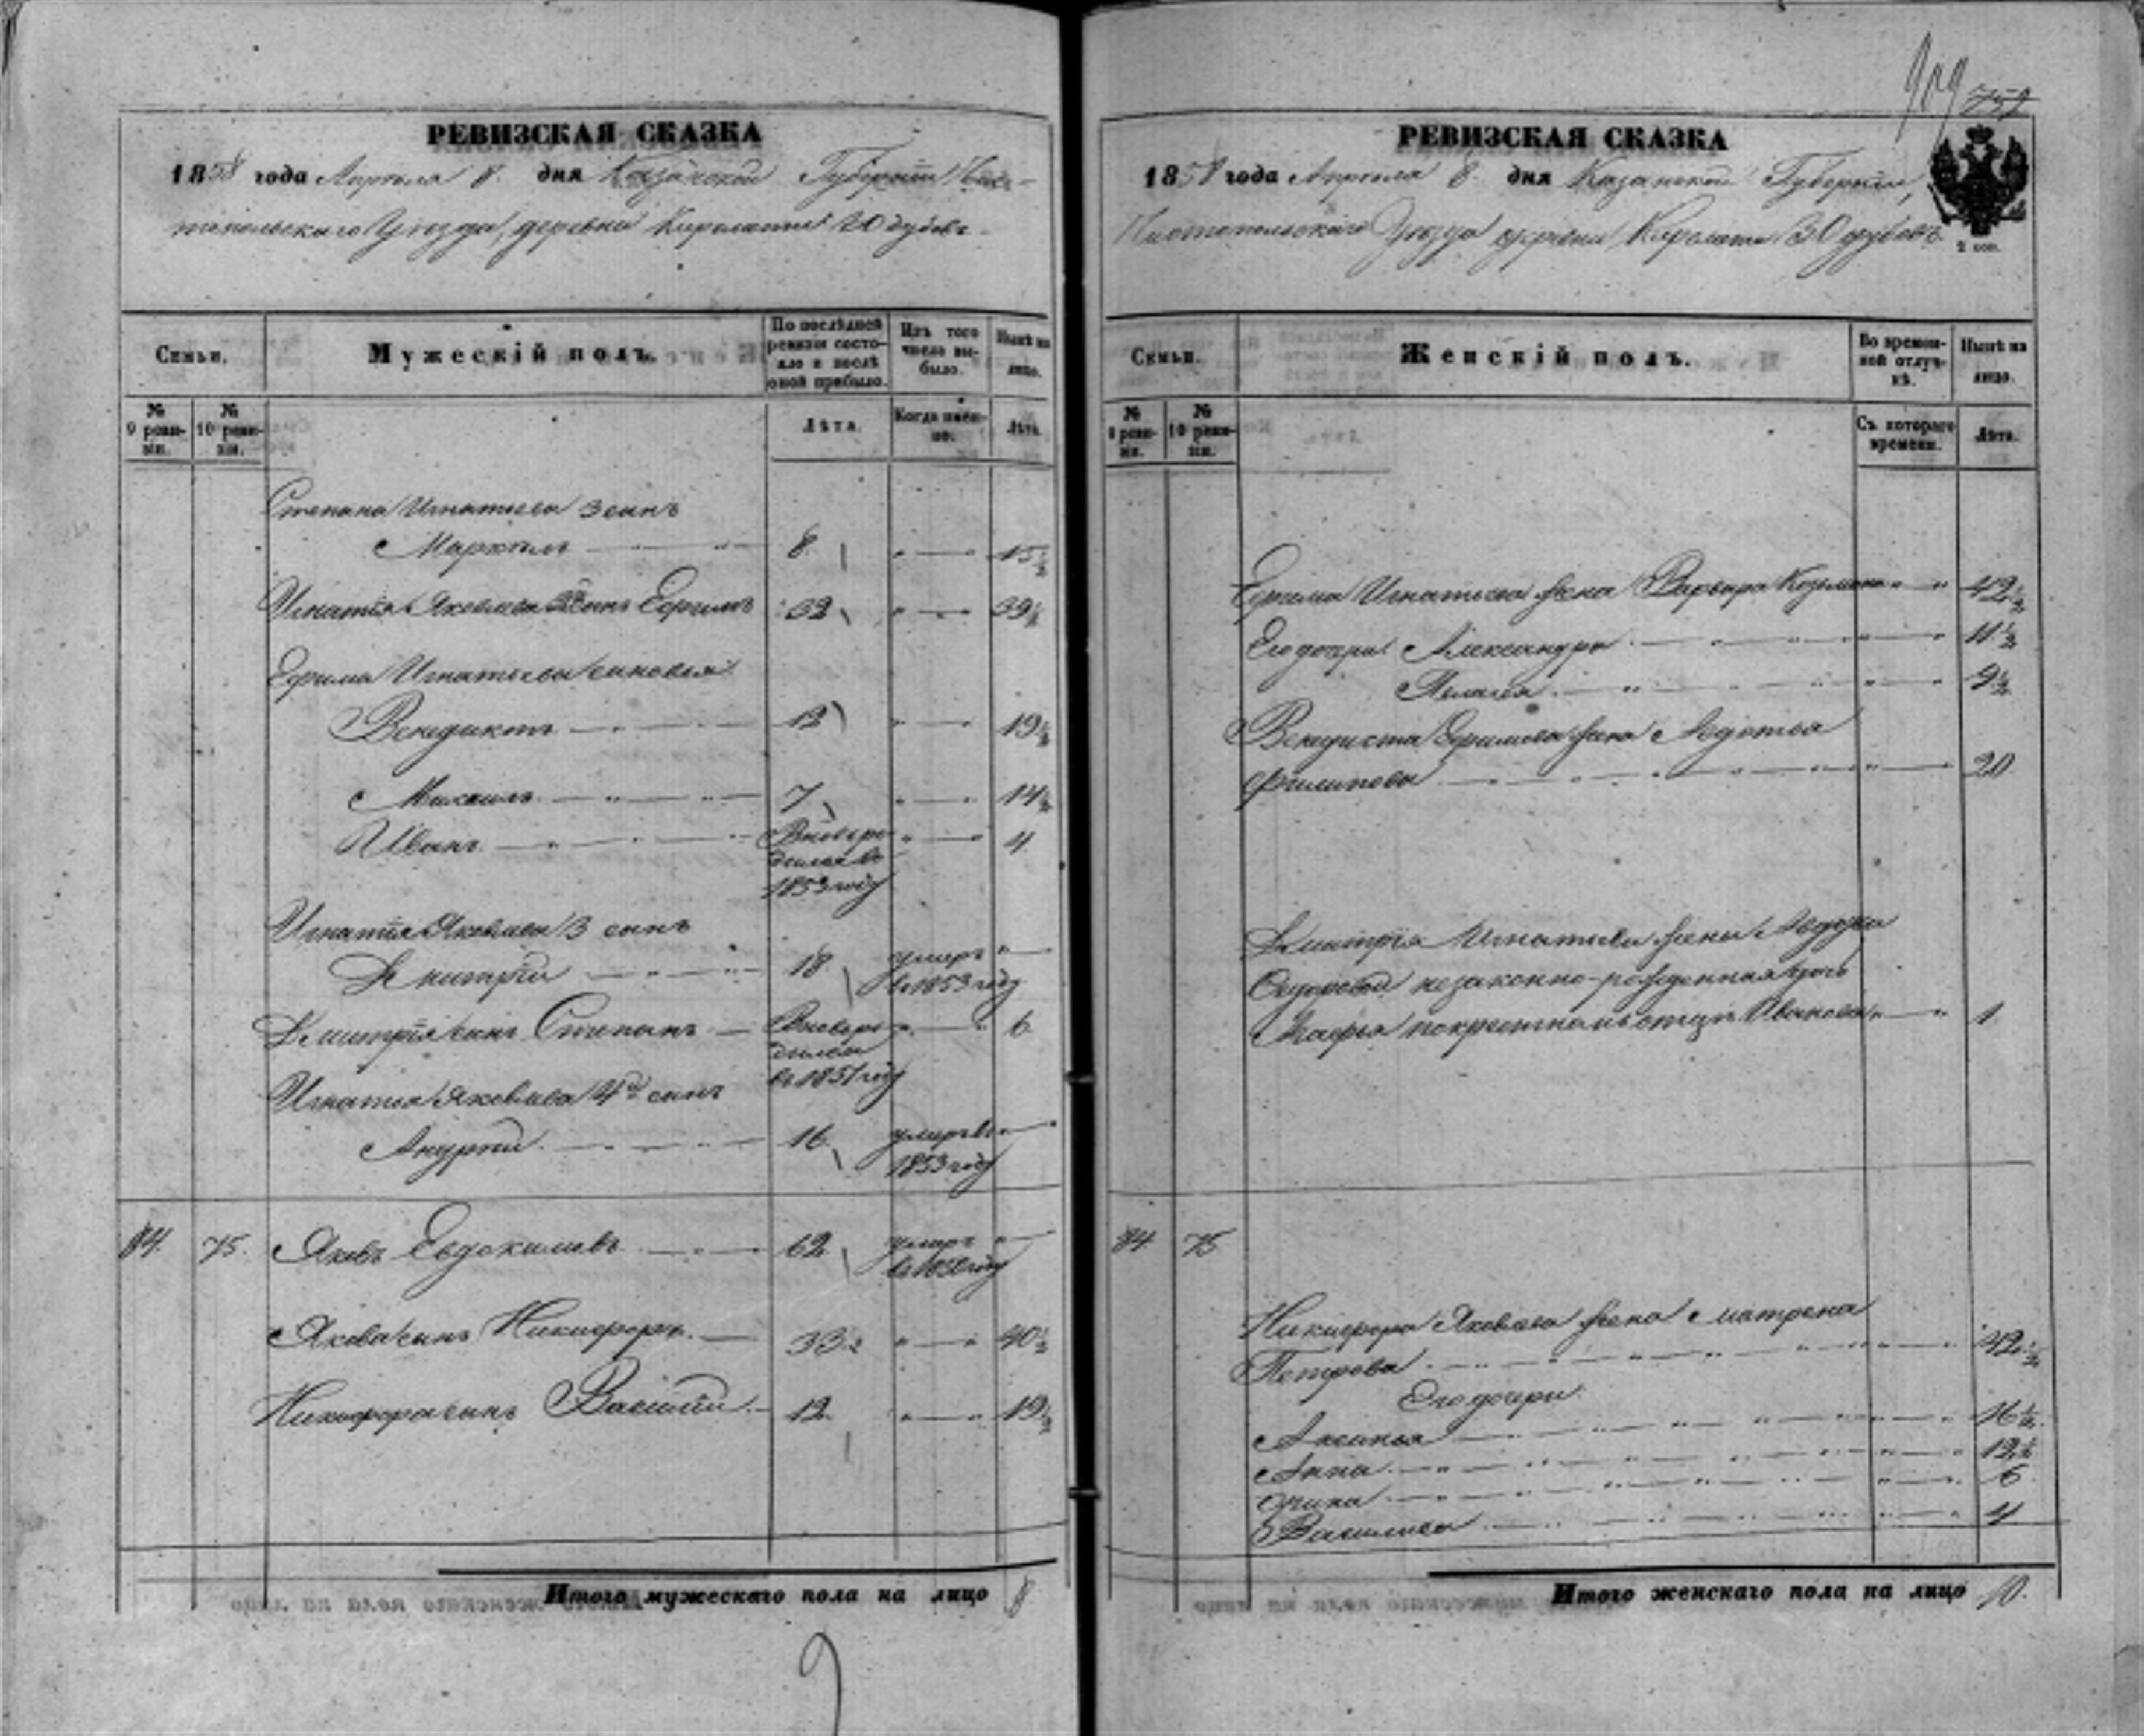 РЕВИЗСКАЯ СКАЗКА
1858 года Апреля 8 дня Казанской Губернии Чис-
топольскаго Уѣзда, деревни
Семьи.
Мужескій полъ.
По послѣдней ревизіи состо-яло и послѣ оной прибыло.
Изъ того числа вы-было.
Нынѣ на лицо.
№ 9 реви-зіи.
№ 10 реви-зіи.
Лѣта.
Когда имен-но.
Лѣта.
Степана Игнатьева 3 сынъ
8 15½
Игнатія Яковлева сынъ Ефимъ 32 39½
Ефима Игнатьева сыновья
Венедиктъ 12 19½
Михаилъ 7 14½
Иванъ Вновь ро- 4
дился въ
1853 году
Игнатія Яковлева 3 сынъ
Дмитрій 18 умеръ
въ 1853 году
Дмитрія сынъ Степанъ Вновь ро- 6
дился
въ 1851 году
Игнатья Яковлева 4й сынъ
16 умеръ въ
1853 году
84. 75. Яковъ Евдокимовъ 62 умеръ
Якова сынъ Никифоръ 33 40½
Никифора сынъ Василій 12 19½
Итого мужескаго пола на лицо 8
9
909 752
РЕВИЗСКАЯ СКАЗКА
1858 года Апреля 8 дня Казанской Губерніи,
Чистопольскаго Уѣзда деревни
2 коп.
Семьи.
Женскій полъ.
Во времен-ной отлуч-кѣ.
Нынѣ на лицо.
№ 9 реви-зіи.
№ 10 реви-зіи.
Съ котораго времени.
Лѣта.
Ефима Игнатьева жена Варвара Козьмина 42½
Его дочери Александра 11½
Пелагея 9½
Венедикта Ефимова жена Авдотья
Филипова 20
Дмитрія Игнатьева жены
незаконно-рожденная дочь
покрестному отцу Иванова 1
84 75
Никифора Яковлева жена Матрена
Петрова 42½
Его дочери
Аксинья 16½
Анна 12½
6
Василиса 4
Итого женскаго пола на лицо 10.